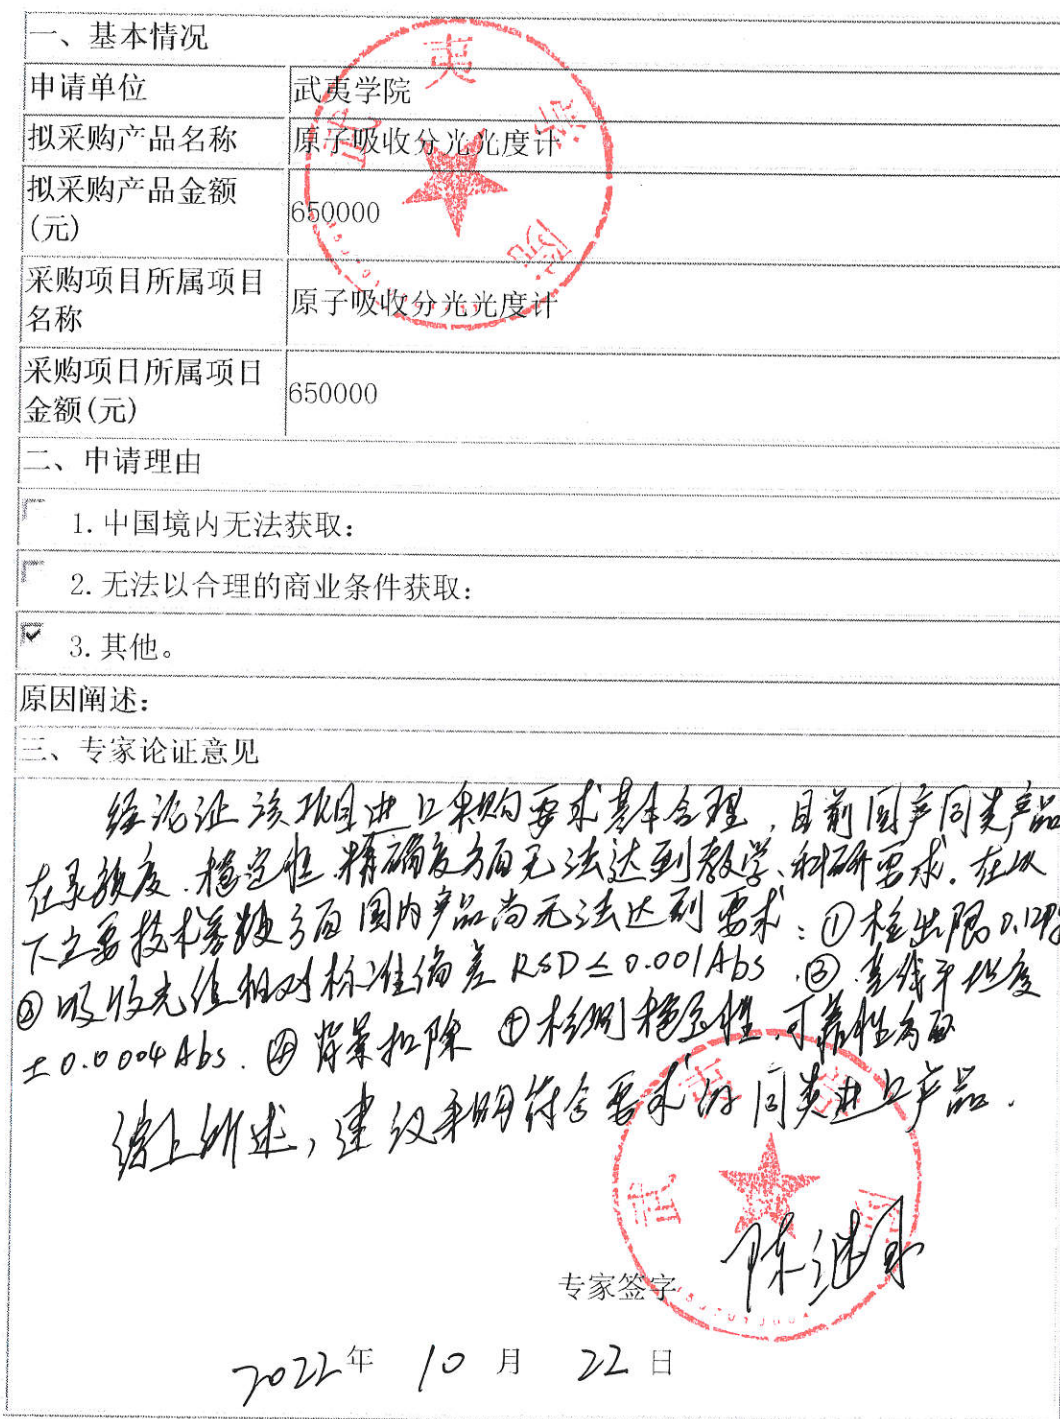 一、基本情况
申请单位 武夷学院
拟采购产品名称 原子吸收分光光度计
拟采购产品金额(元) 650000
采购项目所属项目名称 原子吸收分光光度计
采购项目所属项目金额(元) 650000
二、申请理由
1.中国境内无法获取：
2.无法以合理的商业条件获取：
3.其他。
原因阐述：
三、专家论证意见
经论证该项目进口采购要求基本合理，目前国产同类产品
在灵敏度、稳定性、精确度方面无法达到教学、科研要求. 在以
下主要技术参数方面国内产品尚无法达到要求：①检出限0.
②吸收光值相对标准偏差 RSD≤0.001Abs. ③基线平坦度
±0.0004Abs. ④背景扣除 ⊕检测稳定性、可靠性方面
综上所述，建议采购符合要求的同类进口产品.
武夷学院
武夷学院
专家签字 陈继
2022年 10月 22日